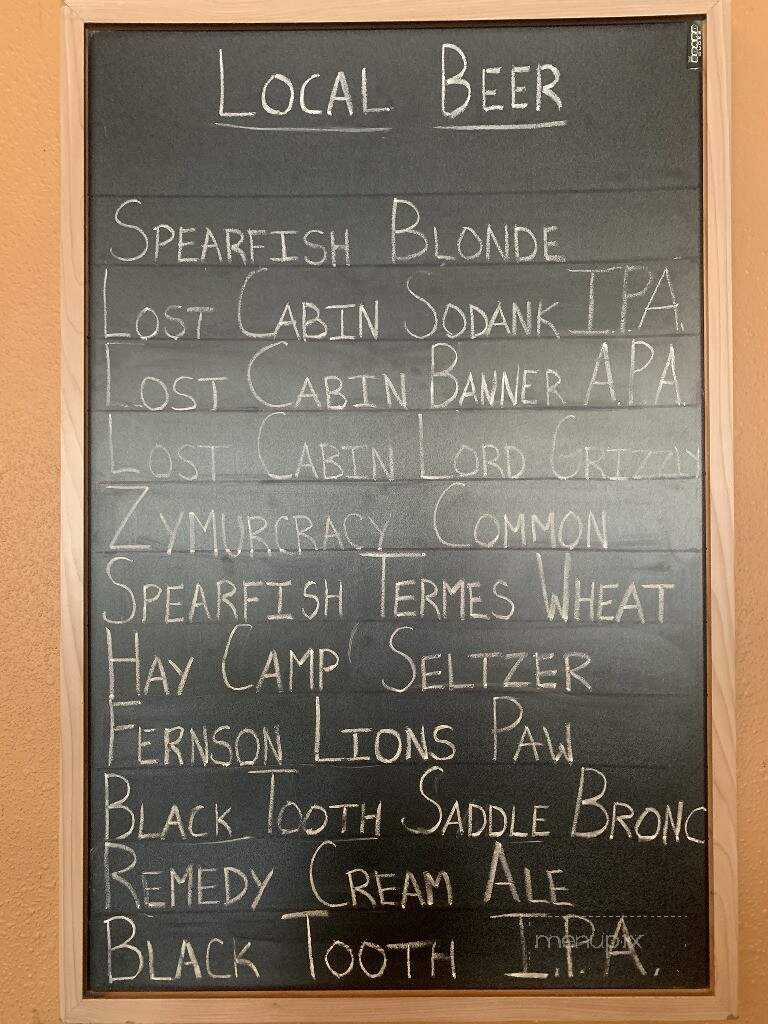 LOCAL BEER
SPEARFISH BLONDE
LOST CABIN SODANK I.P.A.
LOST CABIN BANNER A.P.A.
LOST CABIN LORD GRIZZLY
ZYMURCRACY COMMON
SPEARFISH TERMES WHEAT
HAY CAMP SELTZER
FERNSON LIONS PAW
BLACK TOOTH SADDLE BRONC
REMEDY CREAM ALE
BLACK TOOTH I.P.A.
menupix